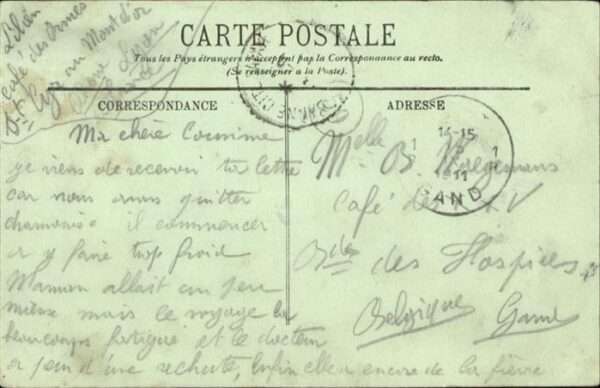 Lilan
Café des Ormes
St Cyr au Mont d'or
Rhône Lyon
France
CARTE POSTALE
Tous les Pays étrangers n'acceptent pas la Correspondance au recto.
(Se renseigner à la Poste).
CORRESPONDANCE
Ma chère Cousine
je viens de recevoir ta lettre
car nous avons quitter
chamonix il commencer
a y faire trop froid
Maman allait un peu
mieux mais le voyage la
beaucoups fatiguée et le docteur
a peur d'une rechute, Enfin elle a encore de la fièvre
ADRESSE
Melle B.
Café des
Bd des Hospices
Belgique Gand
14-15
11
AND